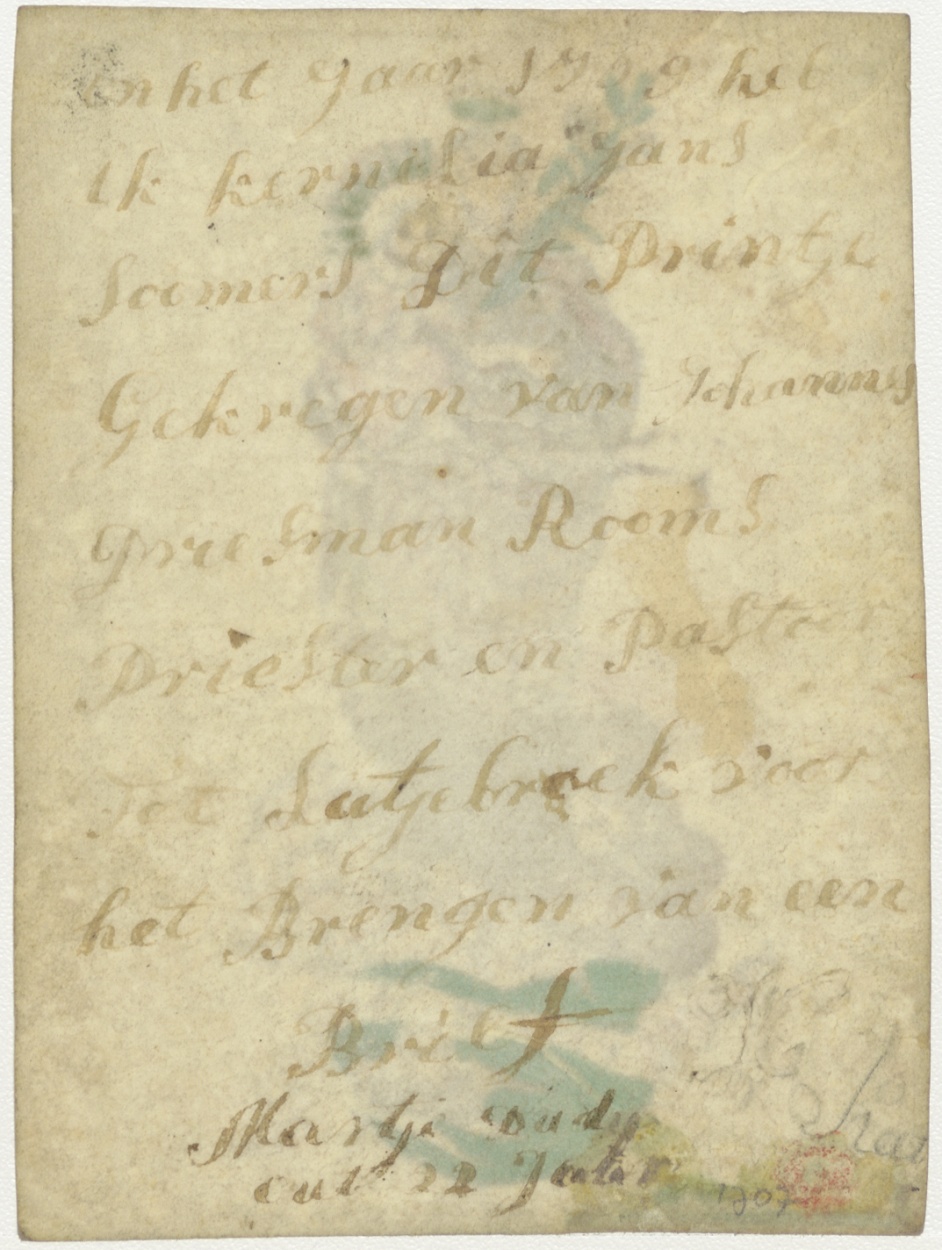 in het Jaar 1729 heb
Ik kernilia Jans
soomers Dit Printje
Gekregen van Johannes
Griesman Rooms
Priester en Pastoor
Tot Lutjebroek voor
het Brengen van een
Brief
Martje oudy
out 22 Jaar
1707